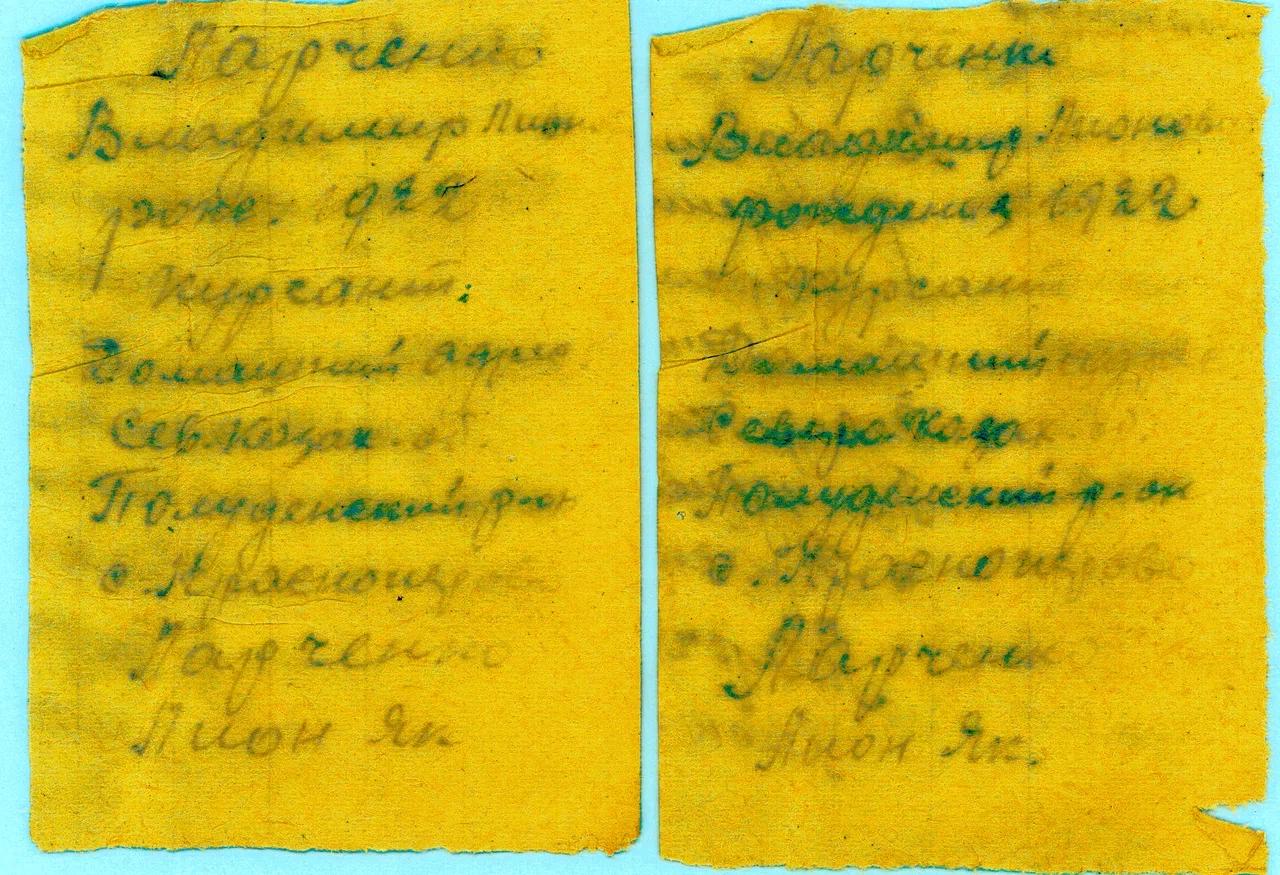 Ларченко
Владимир Лион.
рожд. 1922
Курсант.
Домашний адрес
Сев Казах. об.
Полуденский р-он
д. Красноперово
Ларченко
Лион Як
Ларченко
Владимир Лионов
рождения 1922
Курсант
Домашний адрес
Северо Казах. об.
Полуденский р-он
д. Красноперово
Ларченко
Лион Як.